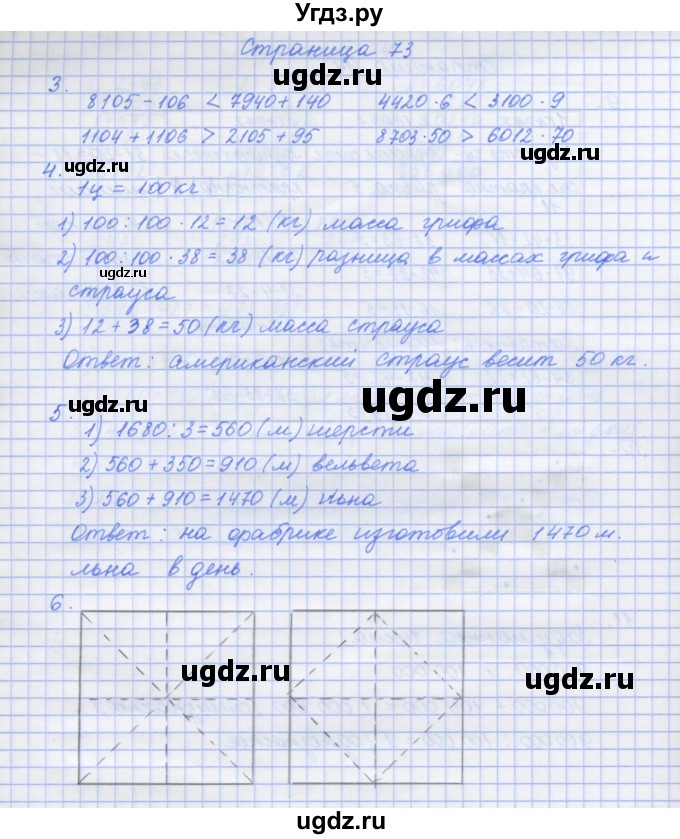 Угдз.ру
Страница 73
3.
8105 - 106 < 7940 + 140 4420 · 6 < 3100 · 9
1104 + 1106 > 2105 + 95 8703 · 50 > 6012 · 70
4.
1ц = 100кг
1) 100 : 100 · 12 = 12 (кг) масса грифа
2) 100 : 100 · 38 = 38 (кг) разница в массах грифа и
страуса
3) 12 + 38 = 50 (кг) масса страуса
Ответ: американский страус весит 50 кг.
5.
1) 1680 : 3 = 560 (м) шерсти
2) 560 + 350 = 910 (м) вельвета
3) 560 + 910 = 1470 (м) льна
Ответ: на фабрике изготовили 1470 м.
льна в день.
6.
ugdz.ru
ugdz.ru
ugdz.ru
ugdz.ru
ugdz.ru
ugdz.ru
ugdz.ru
ugdz.ru
ugdz.ru
ugdz.ru